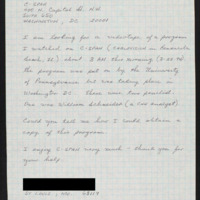 C-SPAN
400 N. Capitol St. NW
Suite 650
Washington, DC 20001
I am looking for a videotape of a program
I watched on C-SPAN
about 2 AM this morning
the program was put on by the University
of Pennsylvania but was taking place in
Washington DC. There were two panelists.
One was William Schneider (a CNN analyst)
Could you tell me how I could obtain a
copy of this program.
I enjoy C-SPAN very much - thank you for
your help
St Louis, MO.